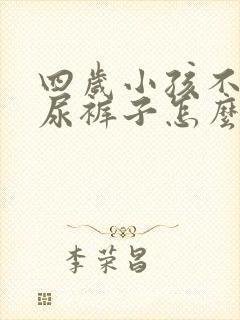 四歲小孩不
尿裤子怎麼
李荣昌